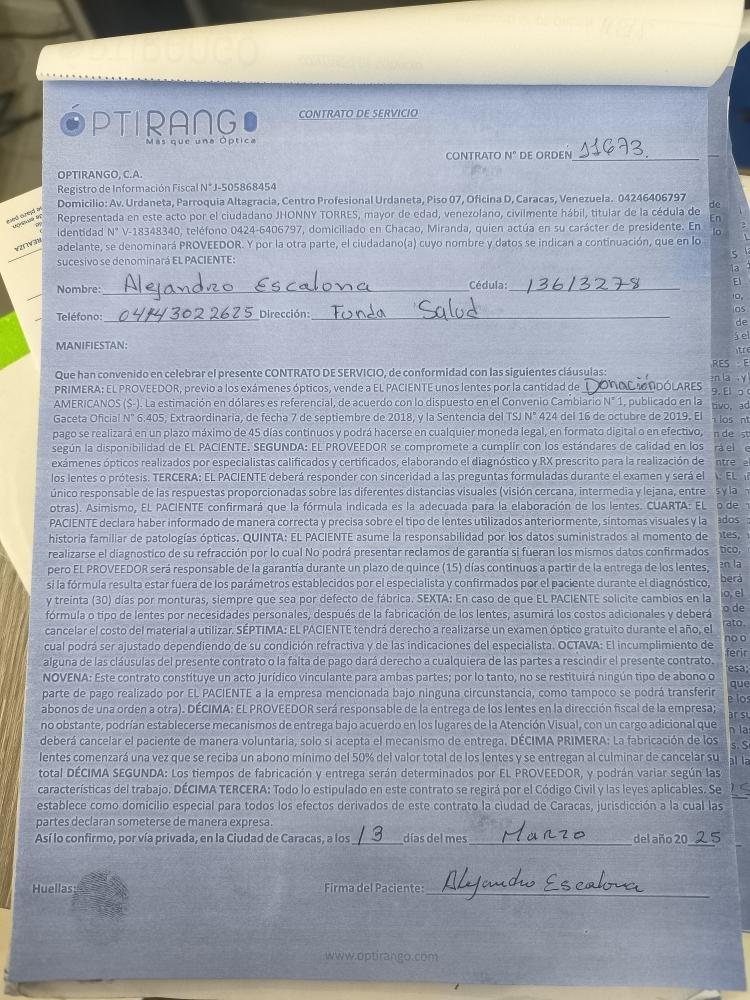 ÓPTIRANGO
Más que una Óptica
CONTRATO DE SERVICIO
CONTRATO N° DE ORDEN 11673.
OPTIRANGO, C.A.
Registro de Información Fiscal N° J-505868454
Domicilio: Av. Urdaneta, Parroquia Altagracia, Centro Profesional Urdaneta, Piso 07, Oficina D, Caracas, Venezuela. 04246406797
Representada en este acto por el ciudadano JHONNY TORRES, mayor de edad, venezolano, civilmente hábil, titular de la cédula de
identidad N° V-18348340, teléfono 0424-6406797, domiciliado en Chacao, Miranda, quien actúa en su carácter de presidente. En
adelante, se denominará PROVEEDOR. Y por la otra parte, el ciudadano(a) cuyo nombre y datos se indican a continuación, que en lo
sucesivo se denominará EL PACIENTE:
Nombre: Alejandro Escalona Cédula: 13613278
Teléfono: 04143022625 Dirección: Funda Salud
MANIFIESTAN:
Que han convenido en celebrar el presente CONTRATO DE SERVICIO, de conformidad con las siguientes cláusulas:
PRIMERA: EL PROVEEDOR, previo a los exámenes ópticos, vende a EL PACIENTE unos lentes por la cantidad de Donación DÓLARES
AMERICANOS ($-). La estimación en dólares es referencial, de acuerdo con lo dispuesto en el Convenio Cambiario N° 1, publicado en la
Gaceta Oficial N° 6.405, Extraordinaria, de fecha 7 de septiembre de 2018, y la Sentencia del TSJ N° 424 del 16 de octubre de 2019. El
pago se realizará en un plazo máximo de 45 días continuos y podrá hacerse en cualquier moneda legal, en formato digital o en efectivo,
según la disponibilidad de EL PACIENTE. SEGUNDA: EL PROVEEDOR se compromete a cumplir con los estándares de calidad en los
exámenes ópticos realizados por especialistas calificados y certificados, elaborando el diagnóstico y RX prescrito para la realización de
los lentes o prótesis. TERCERA: EL PACIENTE deberá responder con sinceridad a las preguntas formuladas durante el examen y será el
único responsable de las respuestas proporcionadas sobre las diferentes distancias visuales (visión cercana, intermedia y lejana, entre
otras). Asimismo, EL PACIENTE confirmará que la fórmula indicada es la adecuada para la elaboración de los lentes. CUARTA: EL
PACIENTE declara haber informado de manera correcta y precisa sobre el tipo de lentes utilizados anteriormente, síntomas visuales y la
historia familiar de patologías ópticas. QUINTA: EL PACIENTE asume la responsabilidad por los datos suministrados al momento de
realizarse el diagnostico de su refracción por lo cual No podrá presentar reclamos de garantía si fueran los mismos datos confirmados
pero EL PROVEEDOR será responsable de la garantía durante un plazo de quince (15) días continuos a partir de la entrega de los lentes,
si la fórmula resulta estar fuera de los parámetros establecidos por el especialista y confirmados por el paciente durante el diagnóstico,
y treinta (30) días por monturas, siempre que sea por defecto de fábrica. SEXTA: En caso de que EL PACIENTE solicite cambios en la
fórmula o tipo de lentes por necesidades personales, después de la fabricación de los lentes, asumirá los costos adicionales y deberá
cancelar el costo del material a utilizar. SÉPTIMA: EL PACIENTE tendrá derecho a realizarse un examen óptico gratuito durante el año, el
cual podrá ser ajustado dependiendo de su condición refractiva y de las indicaciones del especialista. OCTAVA: El incumplimiento de
alguna de las cláusulas del presente contrato o la falta de pago dará derecho a cualquiera de las partes a rescindir el presente contrato.
NOVENA: Este contrato constituye un acto jurídico vinculante para ambas partes; por lo tanto, no se restituirá ningún tipo de abono o
parte de pago realizado por EL PACIENTE a la empresa mencionada bajo ninguna circunstancia, como tampoco se podrá transferir
abonos de una orden a otra). DÉCIMA: EL PROVEEDOR será responsable de la entrega de los lentes en la dirección fiscal de la empresa;
no obstante, podrían establecerse mecanismos de entrega bajo acuerdo en los lugares de la Atención Visual, con un cargo adicional que
deberá cancelar el paciente de manera voluntaria, solo si acepta el mecanismo de entrega. DÉCIMA PRIMERA: La fabricación de los
lentes comenzará una vez que se reciba un abono mínimo del 50% del valor total de los lentes y se entregan al culminar de cancelar su
total DÉCIMA SEGUNDA: Los tiempos de fabricación y entrega serán determinados por EL PROVEEDOR, y podrán variar según las
características del trabajo. DÉCIMA TERCERA: Todo lo estipulado en este contrato se regirá por el Código Civil y las leyes aplicables. Se
establece como domicilio especial para todos los efectos derivados de este contrato la ciudad de Caracas, jurisdicción a la cual las
partes declaran someterse de manera expresa.
Así lo confirmo, por vía privada, en la Ciudad de Caracas, a los 13 días del mes Marzo del año 20 25
Huellas: Firma del Paciente: Alejandro Escalona
www.optirango.com